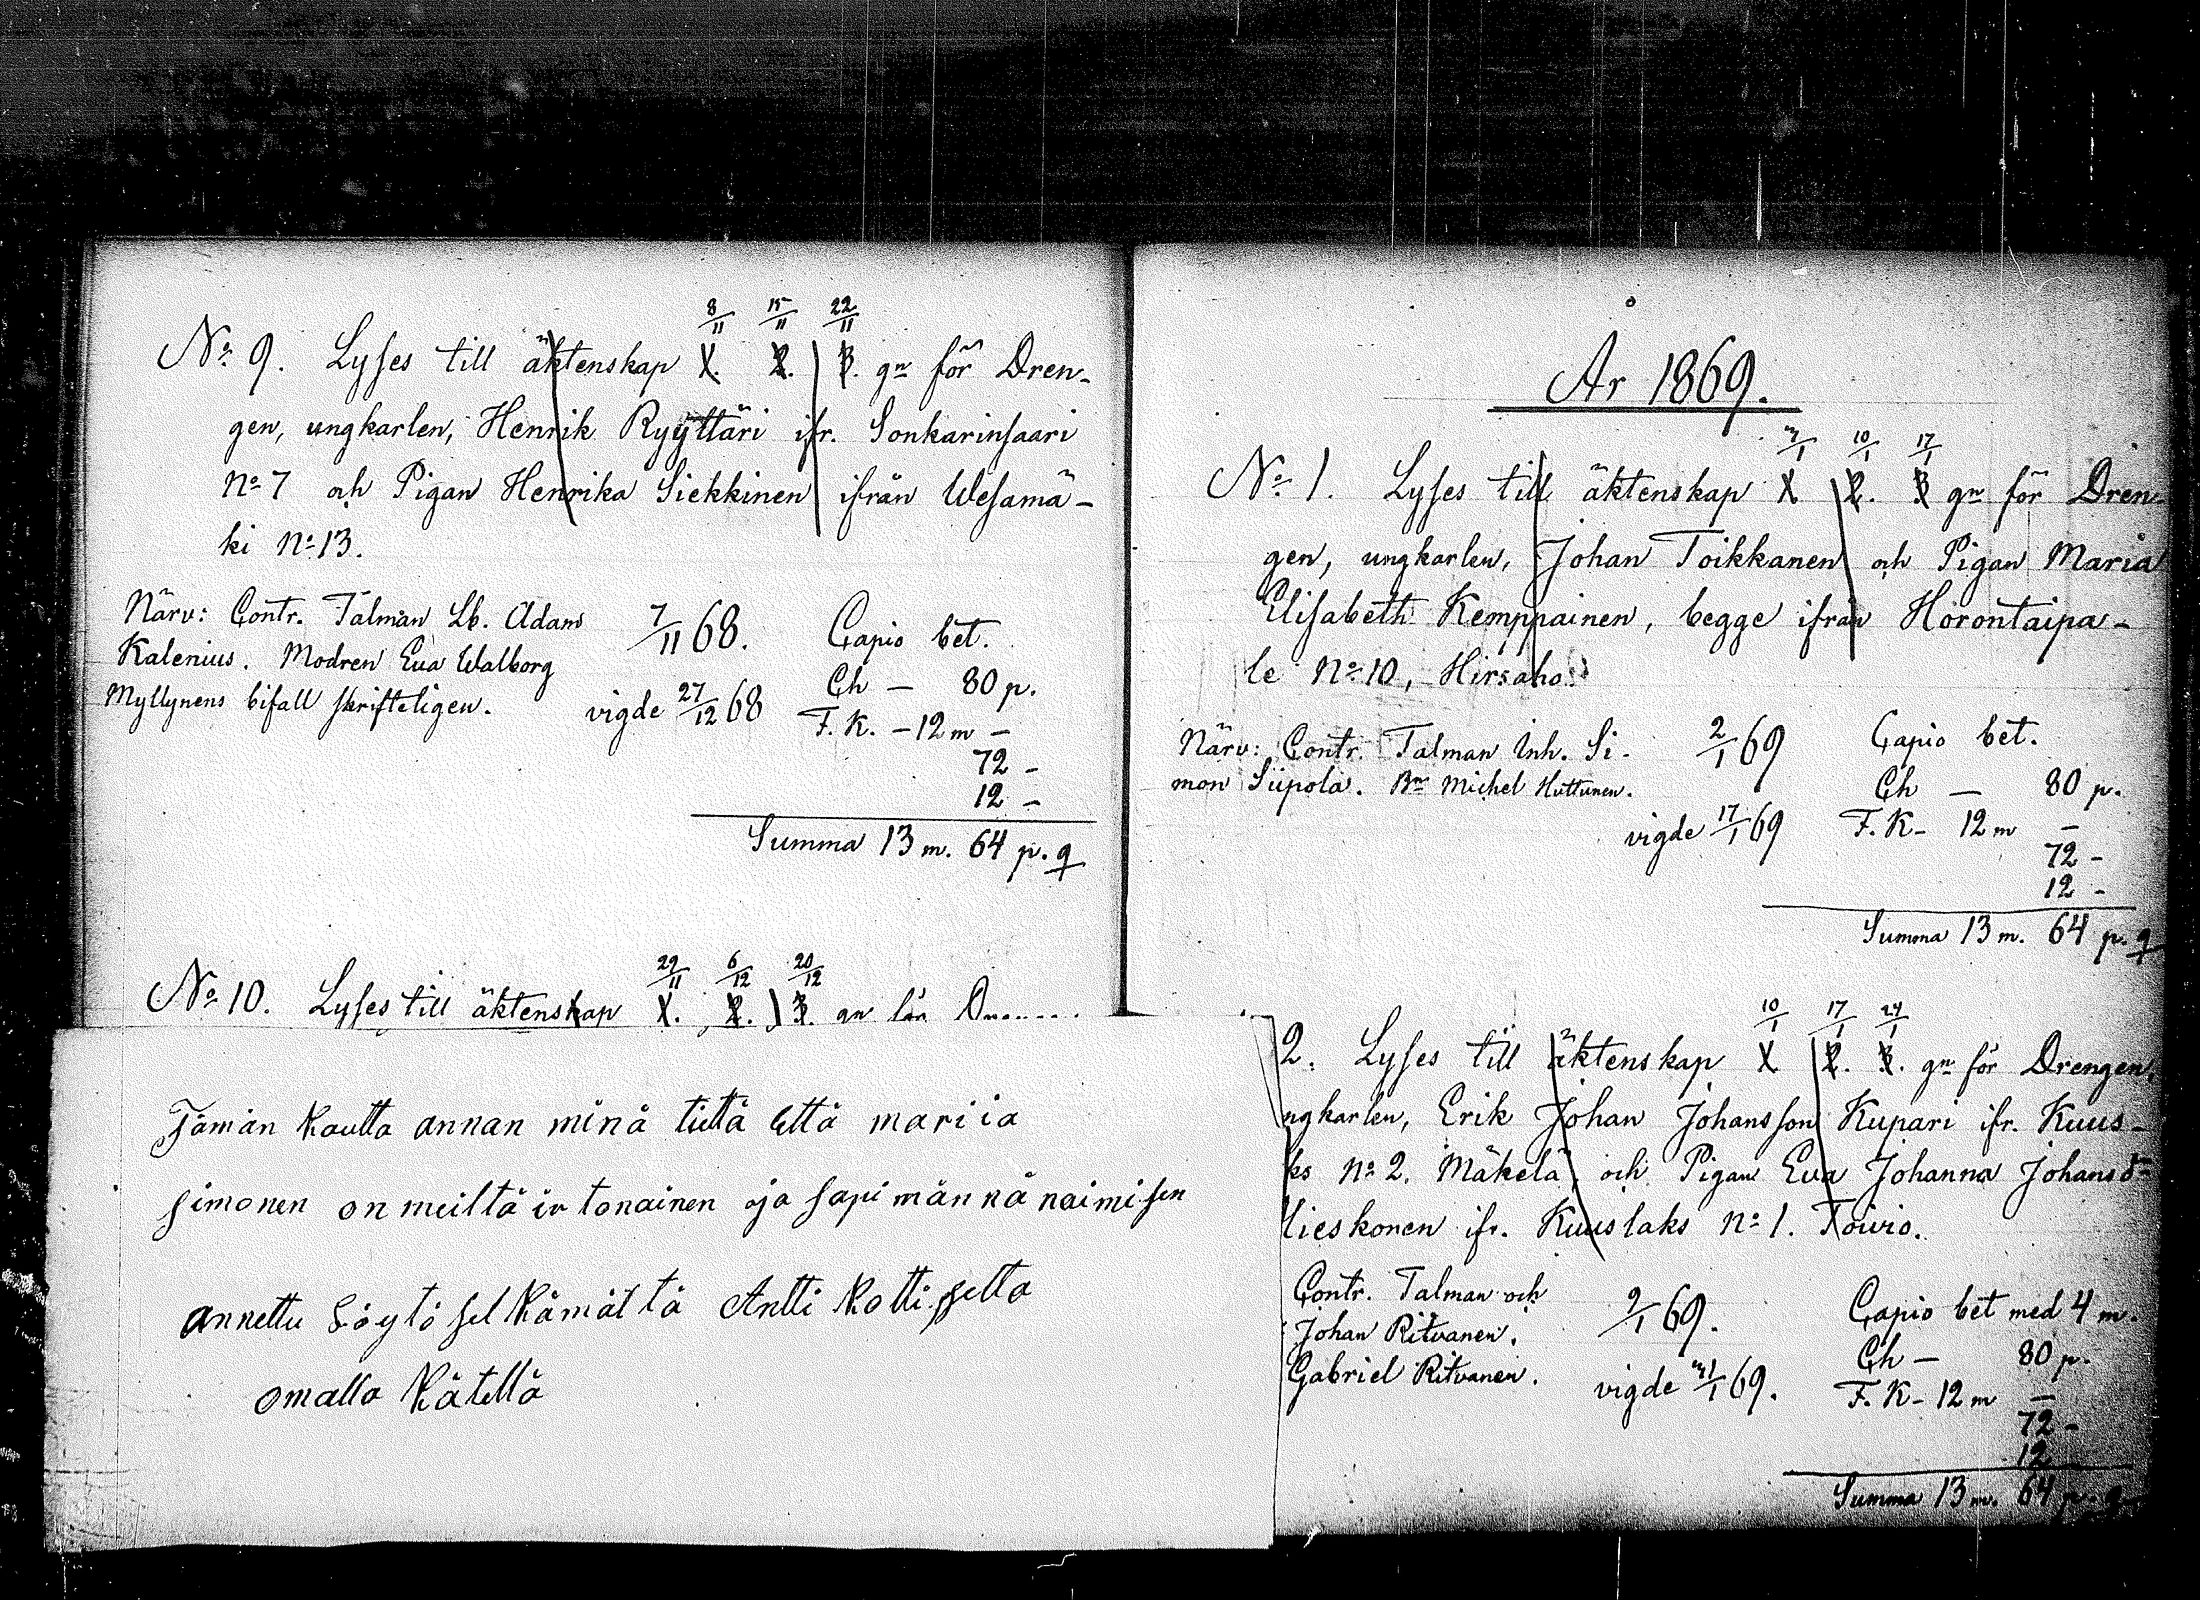 8/11 15/11 22/11
No 9. Lyses till äktenskap 1. 2. 3. gn för Dren-
gen, ungkarlen, Henrik Ryyttäri ifr. Sonkarinsaari
No 7 och Pigan Henrika Siekkinen ifrån Wesamä-
ki No 13.
Närv: Contr. Talman Lb. Adam
Kalenius. Modren Eva Walborg
Myllynens bifall skrifteligen.
7/11 68.
vigde 27/12 68
Capio bet.
Ch — 80 p.
F. K. — 12 m —
72 -
12 -
Summa 13 m. 64 p.
29/11 6/12 20/12
No 10. Lyses till äktenskap 1. 2. 3. gn för
Tämän kautta annan minä tietä että mariia
simonen on meiltä ir tonainen oja sapi män nä naimisen
annettu Söytö sel kämältä Antti Kotti selta
omalla Kätellä
År 1869.
10/1 17/1
No 1. Lyses till äktenskap 1 2. 3 gn för Dren-
gen, ungkarlen, Johan Toikkanen och Pigan Maria
Elisabeth Kemppainen, begge ifrån Horontaipa-
le No 10, Hirsaho.
Närv: Contr. Talman Inh. Si-
mon Siipola. Bn Michel Huttunen.
2/1 69
vigde 17/1 69
Capio bet.
Ch — 80 p.
F. K - 12 m —
72 -
12 -
Summa 13 m. 64 p.
10/1 17/1 24/1
2. Lyses till äktenskap 1 2. 3. gn för Drengen,
ngkarlen, Erik Johan Johansson Kupari ifr. Kuus-
ks No 2. Mäkelä, och Pigan Eva Johanna Johansdr
lieskonen ifr. Kuuslaks No 1. Toivio.
Contr. Talman och
Johan Ritvanen.
Gabriel Ritvanen.
9/1 69.
vigde 31/1 69.
Capio bet med 4 m.
Ch — 80 p.
F. K - 12 m —
72 -
12
Summa 13 m. 64 p.